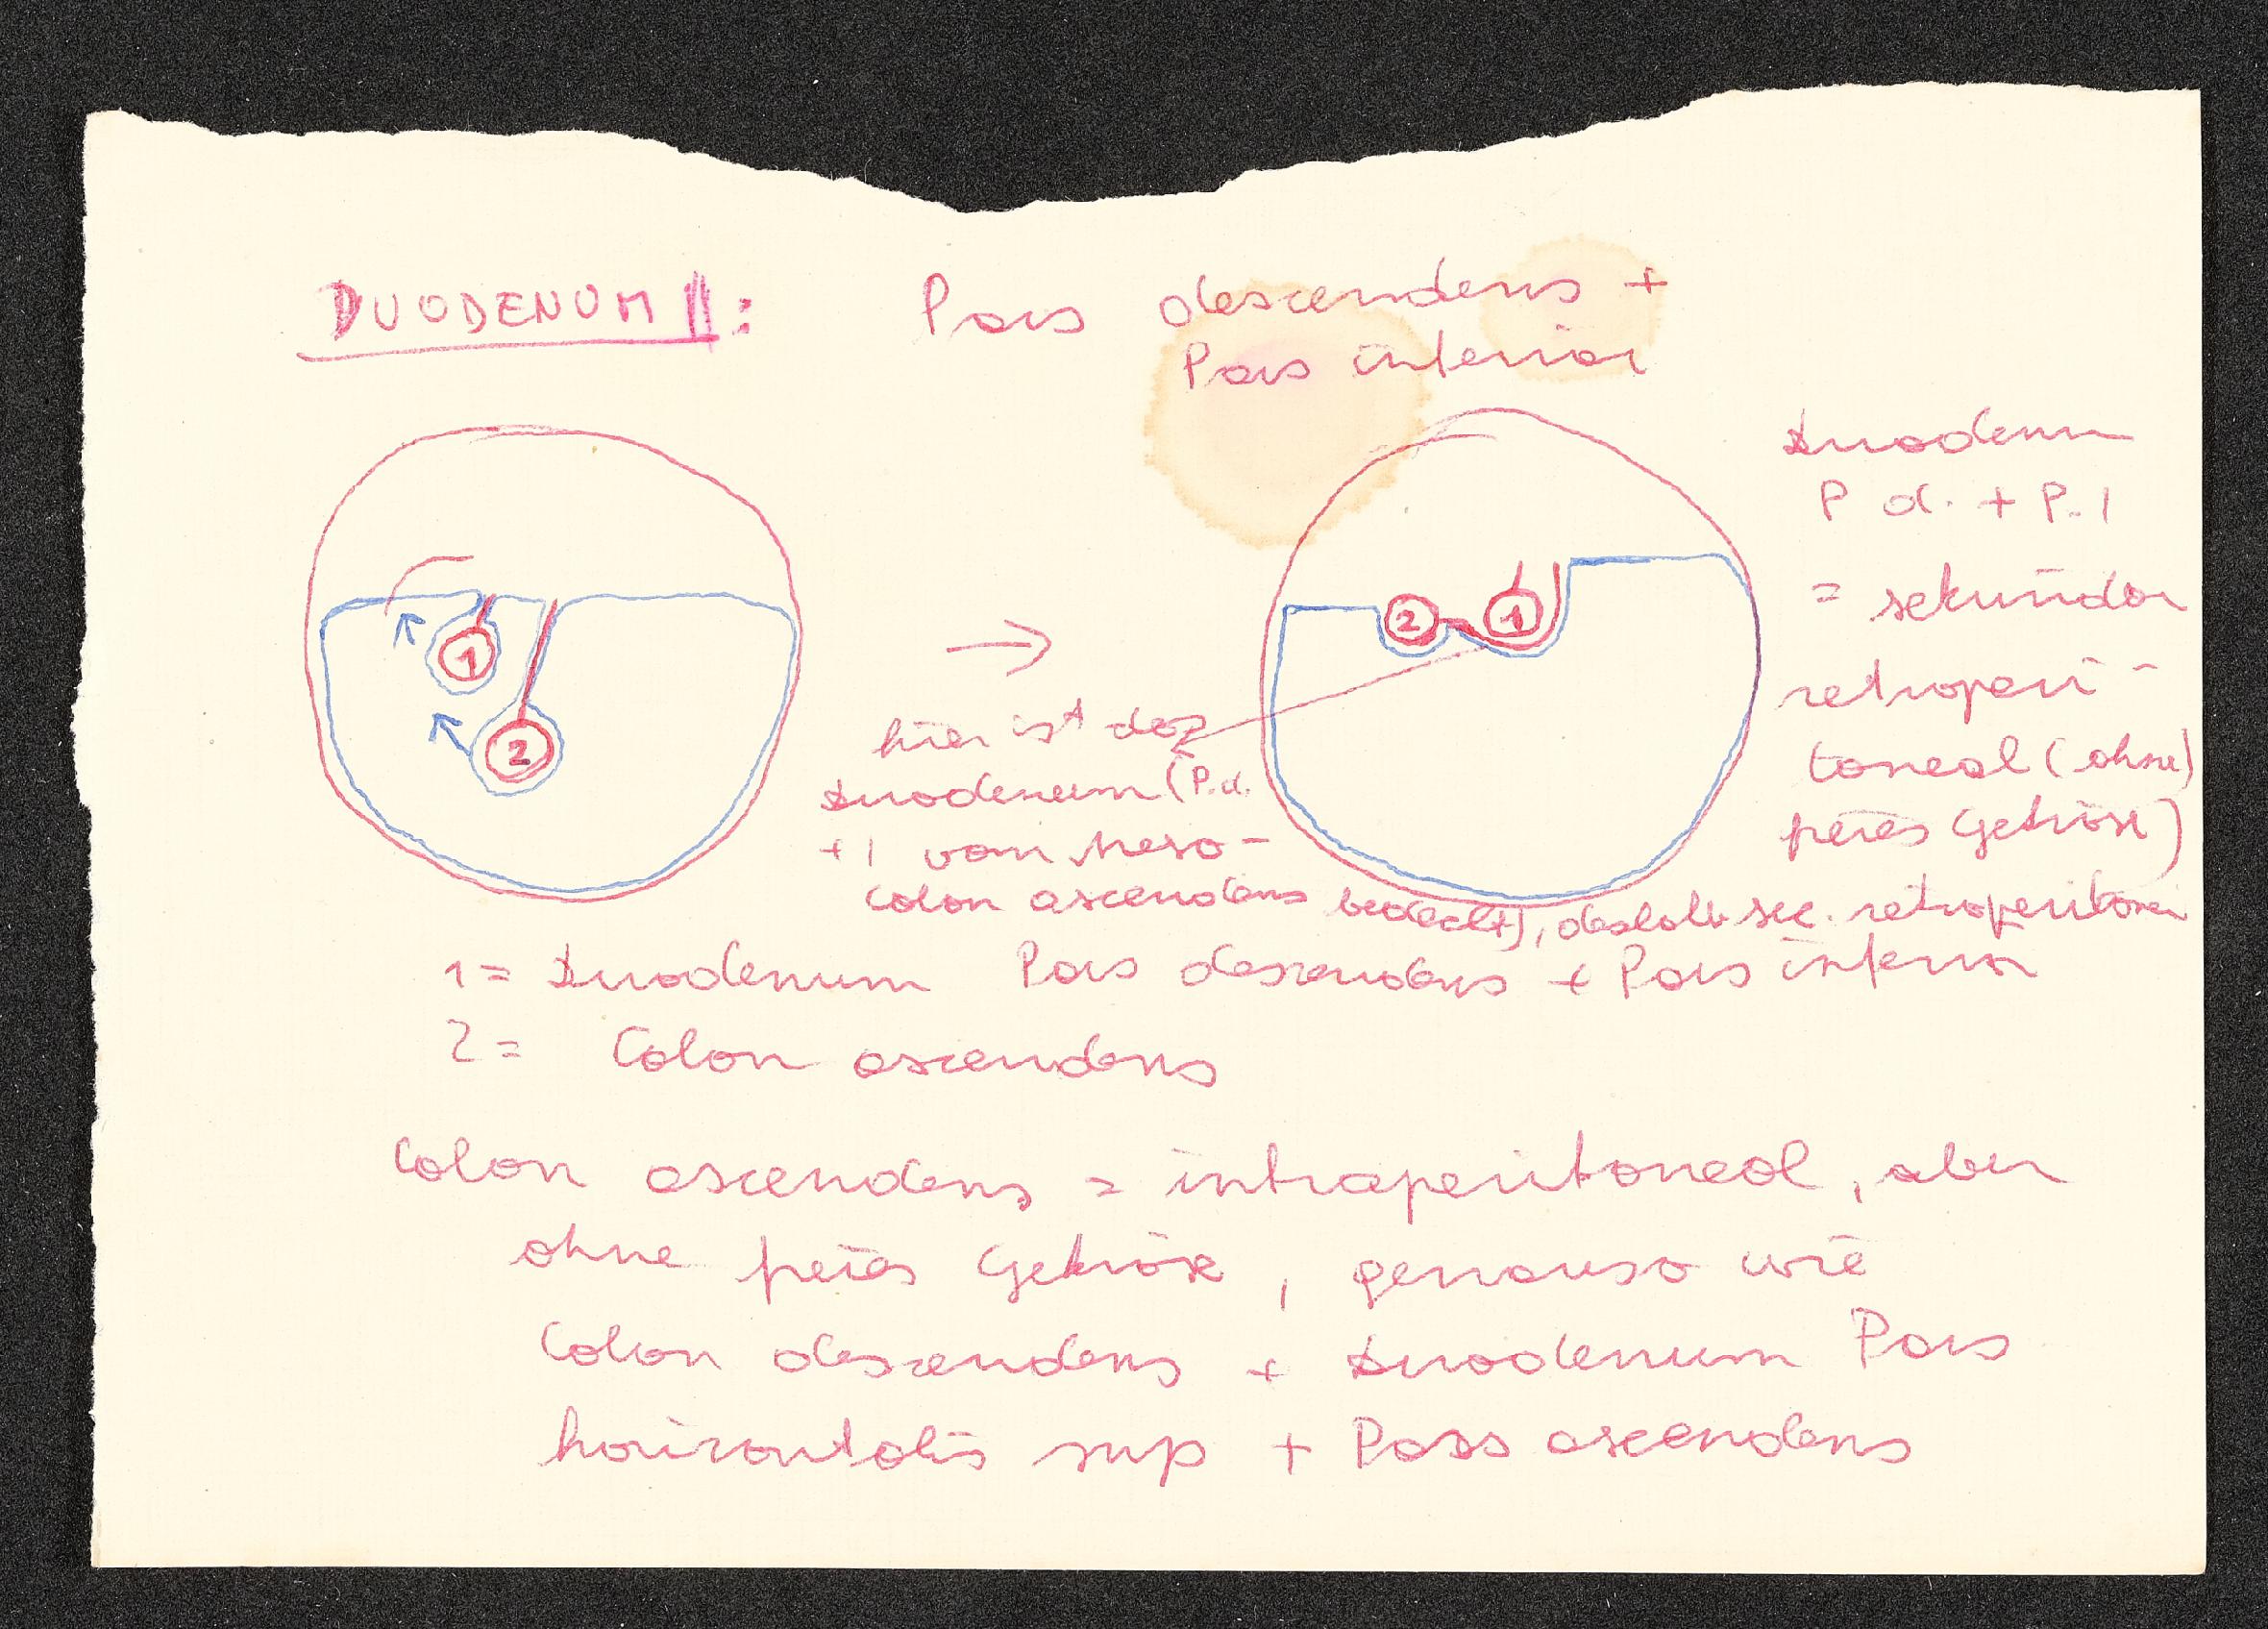 DUODENUM II: Pars descendens +
Pars inferior
1
2
2
1
Duodenum
P d. + P. I
= sekundär
retroperi-
toneal (ohne
freies Gekröse)
hier ist das
Duodenum (P.d.
+ I vom Meso-
colon ascendens bedeckt), deshalb sec. retroperitoneal
1 = Duodenum Pars descendens + Pars inferior
2 = Colon ascendens
Colon ascendens = intraperitoneal, aber
ohne freies Gekröse, genauso wie
Colon descendens + Duodenum Pars
horizontalis sup + Pars ascendens